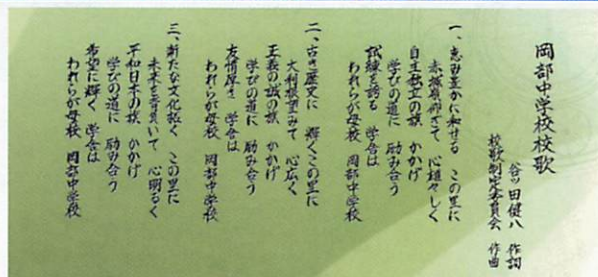 岡部中学校校歌
谷田健八 作詞
校歌制定委員会 作曲
一、恵み豊かに和せる この里に
赤城嶺仰ぎて 心雄々しく
自主独立の旗 かかげ
学びの道に 励み合う
試練を誇る 学舎は
われらが母校 岡部中学校
二、古き歴史に 輝くこの里に
大利根望みて 心広く
正義の誠の旗 かかげ
学びの道に 励み合う
友情厚き 学舎は
われらが母校 岡部中学校
三、新たな文化拓く この里に
未来を背負いて 心明るく
平和日本の旗 かかげ
学びの道に 励み合う
希望に輝く 学舎は
われらが母校 岡部中学校